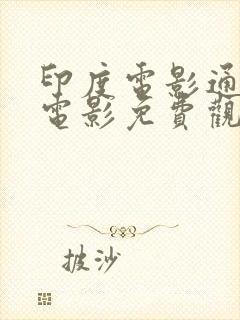 印度電影通
電影免費觀
披沙